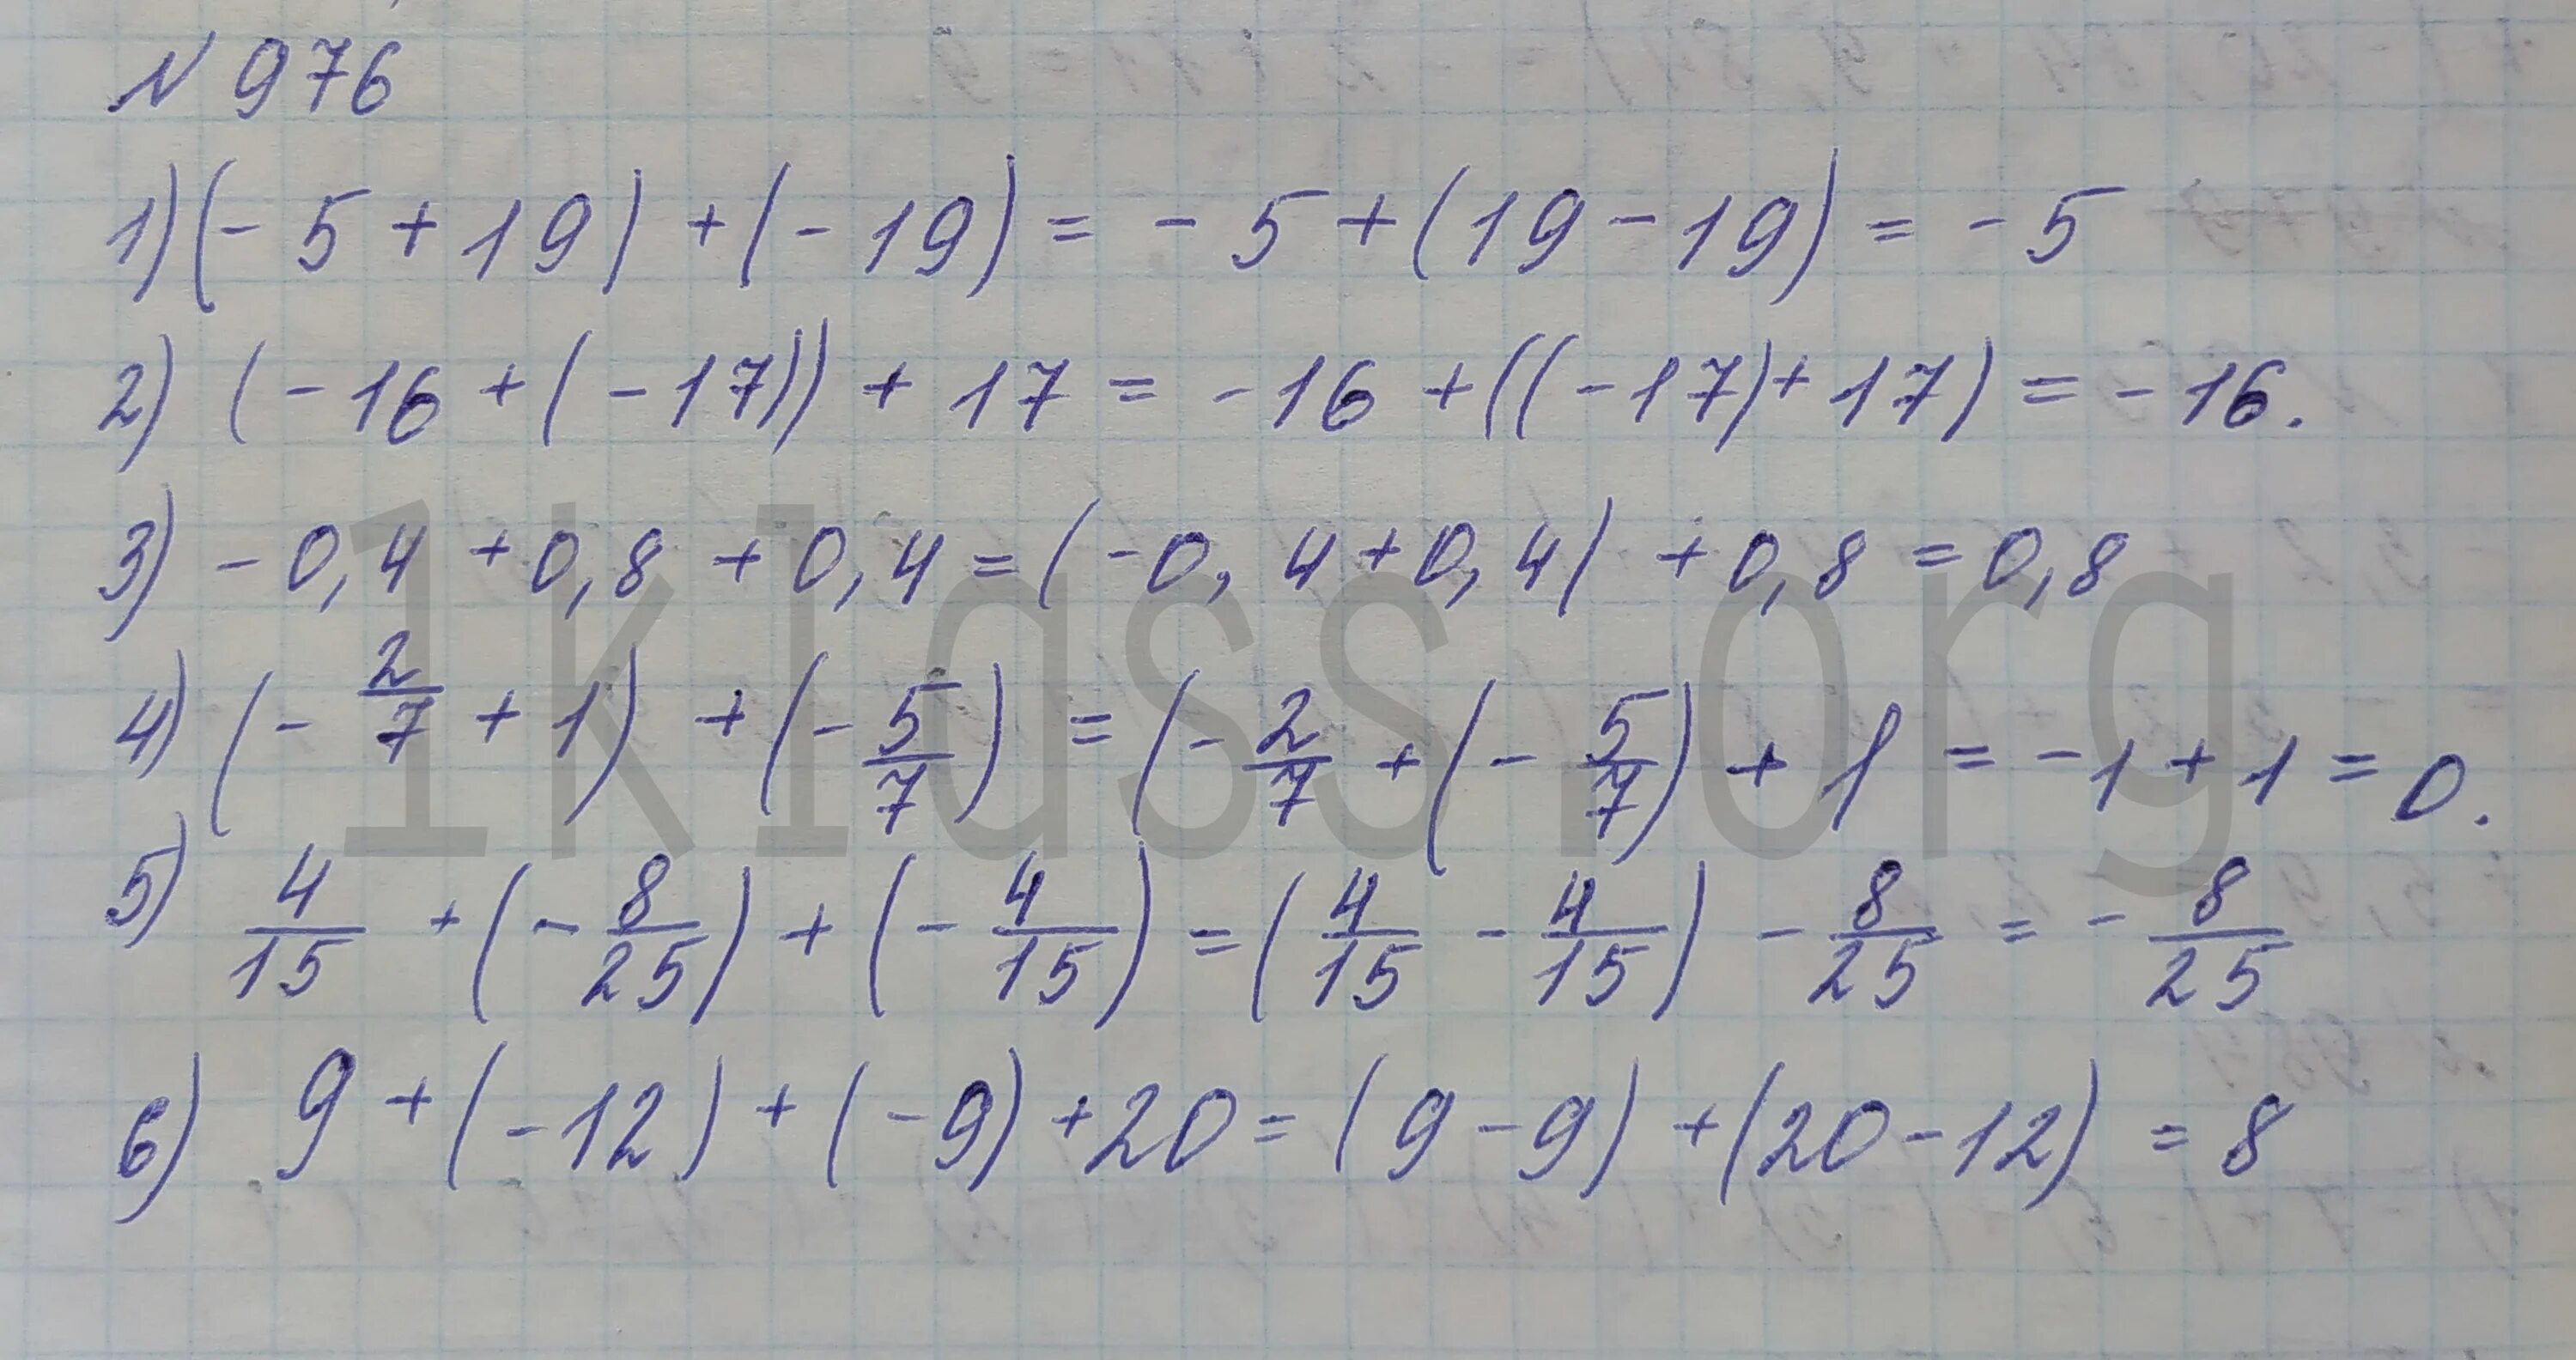 N 976
1) (- 5 + 19) + (- 19) = - 5 + (19 - 19) = - 5
2) (- 16 + (- 17)) + 17 = - 16 + ((- 17) + 17) = - 16.
3) - 0,4 + 0,8 + 0,4 = (- 0,4 + 0,4) + 0,8 = 0,8
4) (- 2/7 + 1) + (- 5/7) = (- 2/7 + (- 5/7) + 1 = - 1 + 1 = 0.
5) 4/15 + (- 8/25) + (- 4/15) = (4/15 - 4/15) - 8/25 = - 8/25
6) 9 + (- 12) + (- 9) + 20 = (9 - 9) + (20 - 12) = 8
1klass.org